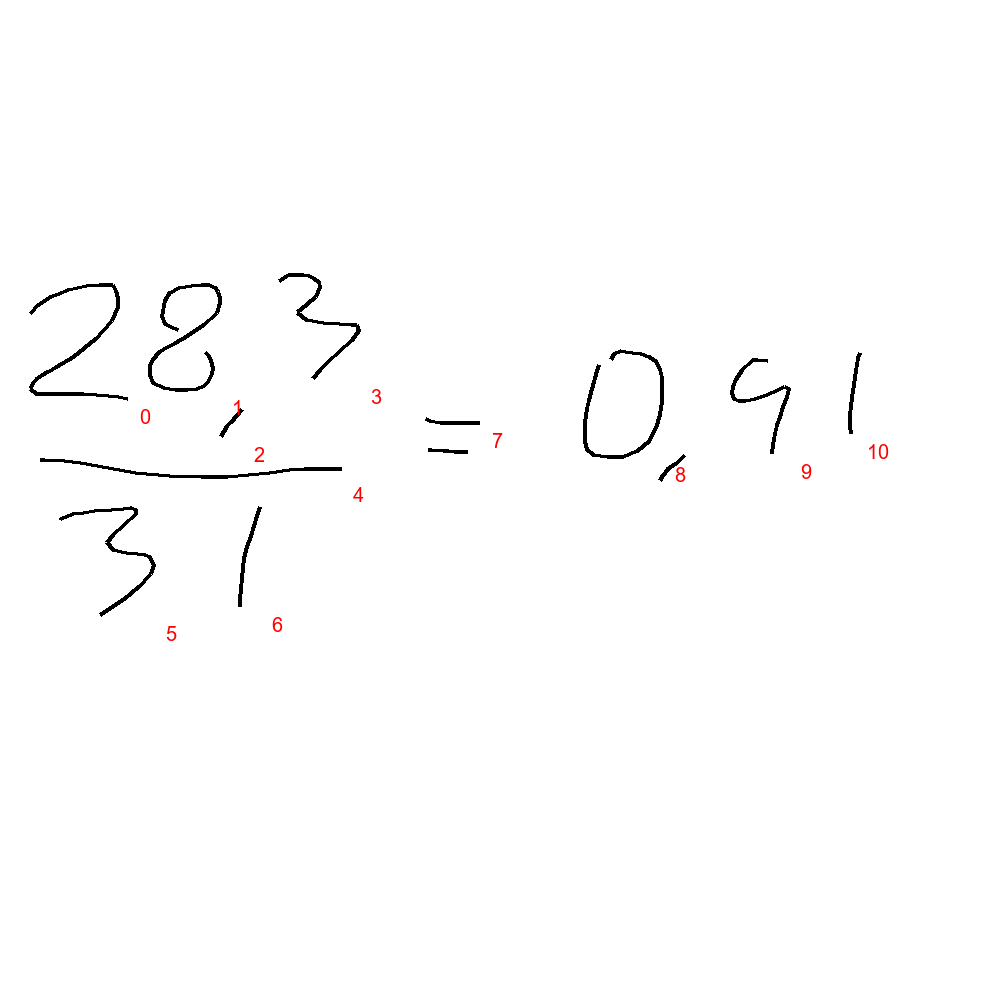 28,3
31
= 0,91
0
1
2
3
4
5
6
7
8
9
10